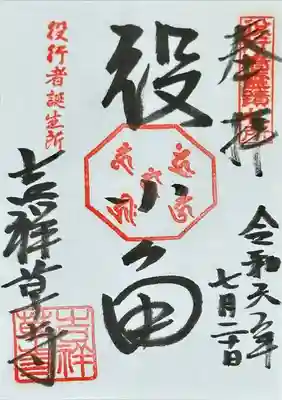 奉拝
令和元年
七月二十日
役小角
役行者誕生所
吉祥草寺
吉祥草寺